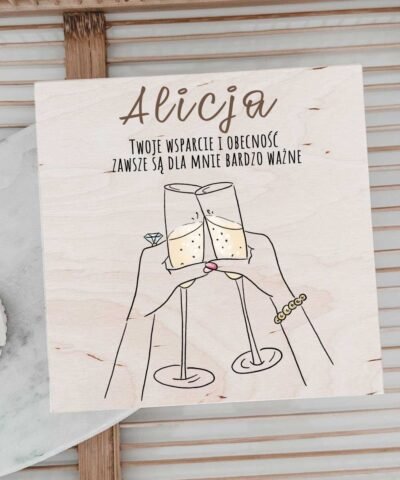 Alicja
Twoje wsparcie i obecność
zawsze są dla mnie bardzo ważne